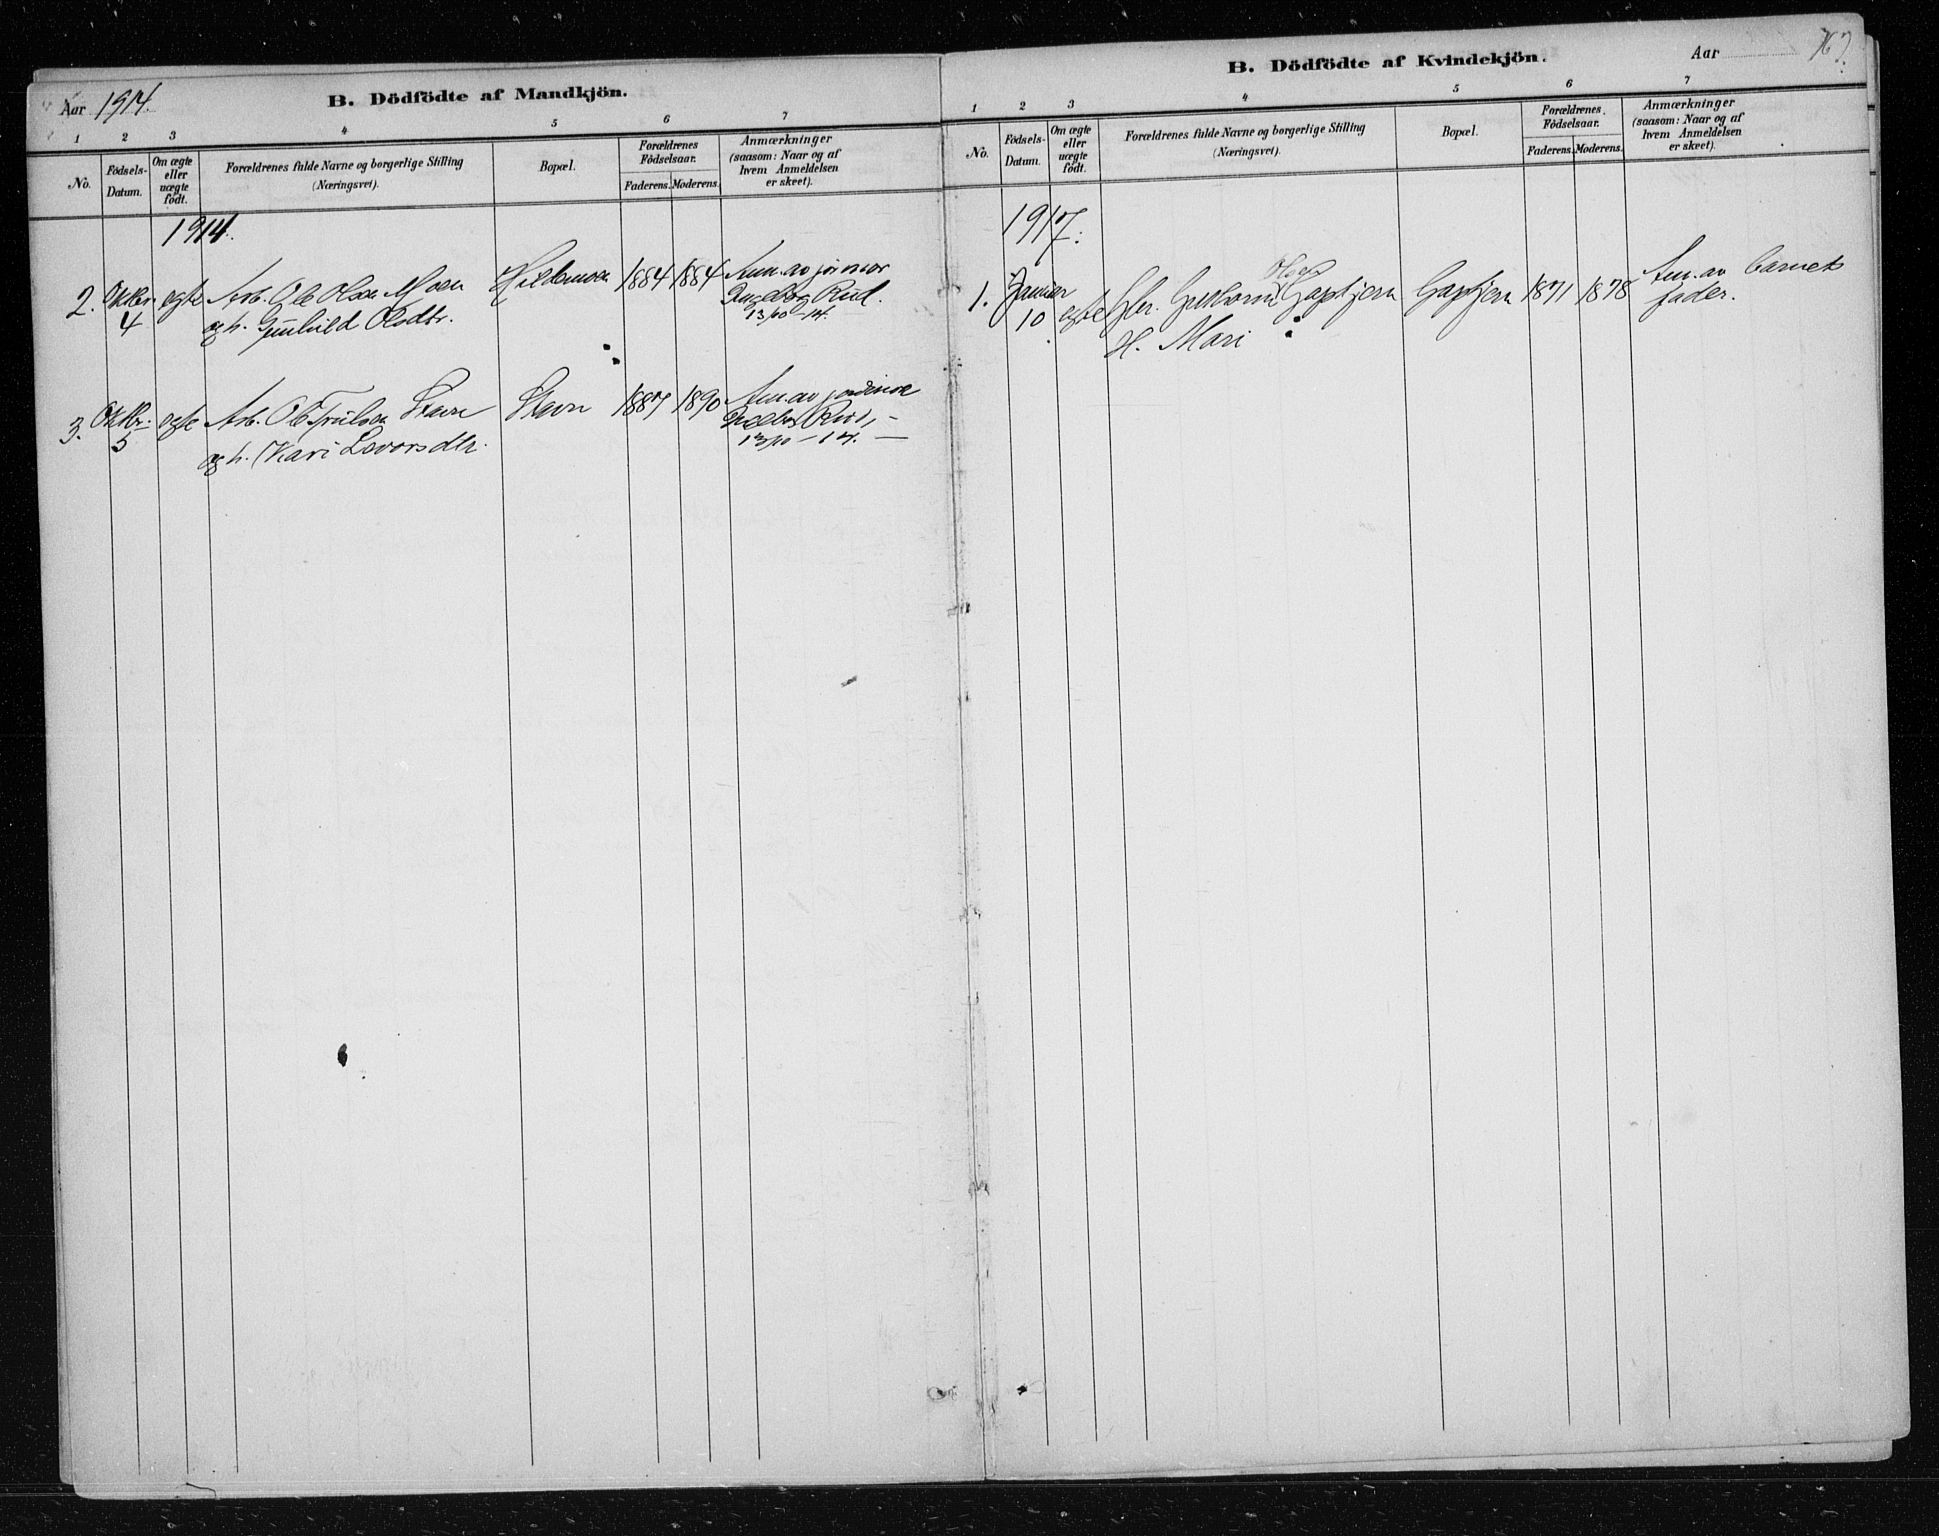 Aar 1914.
B. Dödfödte af Mandkjön.
1 2 3 4 5 6 7
No.
Födsels-
Datum.
Om ægte
eller
uægte
födt.
Forældrenes fulde Navne og borgerlige Stilling
(Næringsvei).
Bopæl.
Forældrenes
Födselsaar.
Faderens. Moderens.
Anmærkninger
(saasom: Naar og af
hvem Anmeldelsen
er skeet).
1914.
2. Oktbr. ægte Arb. Ole Olsen Moen 1884 1884 Anm. av jormor
4 og h. Gunhild Olsdtr. Ingeborg Rud.
13/10 - 14.
3. Oktbr. ægte Arb. Ole Trulsen Stavn Stavn 1887 1890 Anm. av jordmor
5 og h. Kari Levorsdtr. Ingeborg Rud,
13/10 - 14.
B. Dödfödte af Kvindekjön.
Aar
167.
1 2 3 4 5 6 7
No.
Födsels-
Datum.
Om ægte
eller
uægte
födt.
Forældrenes fulde Navne og borgerlige Stilling
(Næringsvei).
Bopæl.
Forældrenes
Födselsaar.
Faderens. Moderens.
Anmærkninger
(saasom: Naar og af
hvem Anmeldelsen
er skeet).
1917.
Olsen
1. Januar ægte Gbr. Guttorm Gaptjern Gaptjern 1871 1878 Anm. av barnets
10 H. Mari fader.